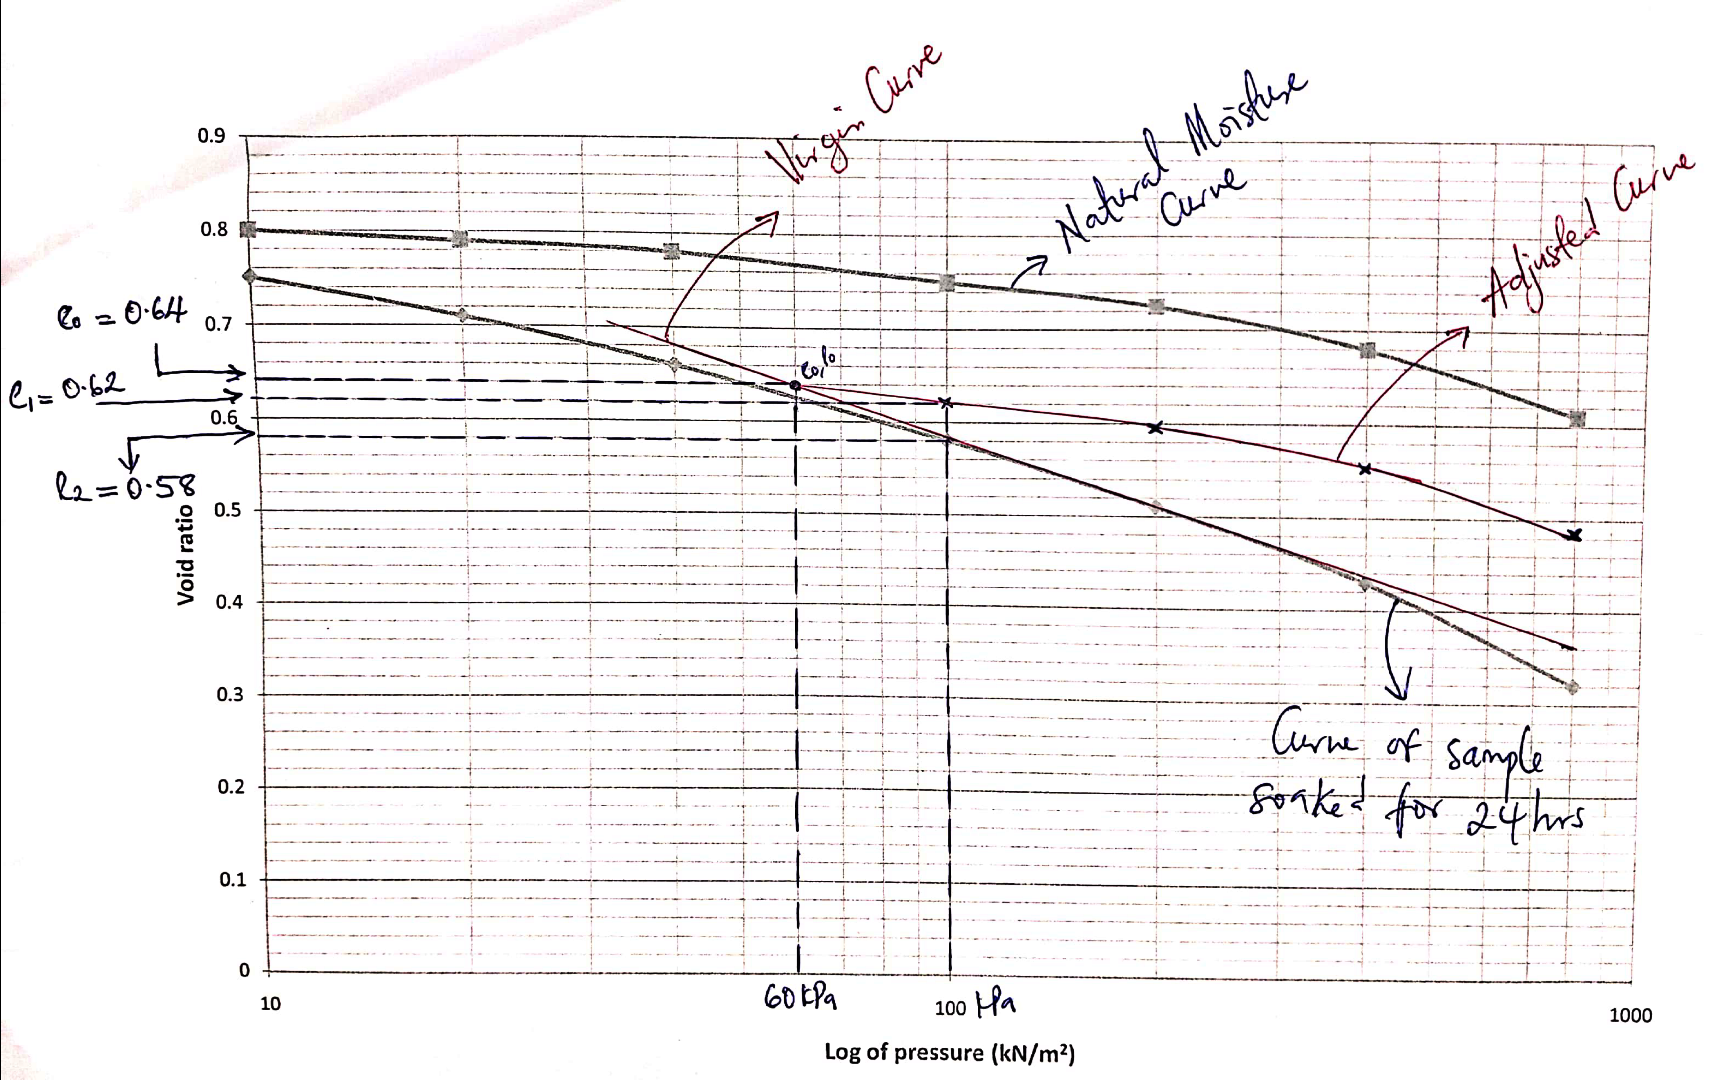 Virgin Curve
Natural Moisture
Curve
Adjusted Curve
0.9
0.8
0.7
0.6
0.5
0.4
0.3
0.2
0.1
0
e₀ = 0.64
e₁ = 0.62
e₂ = 0.58
Void ratio
e₀, p₀
Curve of sample
soaked for 24hrs
10
60 kPa
100 kPa
1000
Log of pressure (kN/m²)